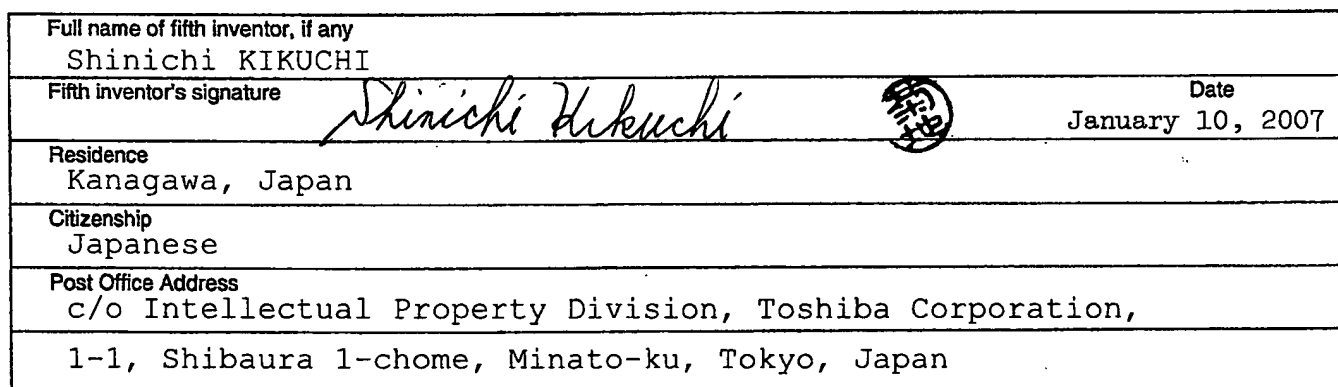 Full name of fifth inventor, if any
Shinichi KIKUCHI
Fifth inventor's signature
Shinichi Kikuchi
Date
January 10, 2007
Residence
Kanagawa, Japan
Citizenship
Japanese
Post Office Address
c/o Intellectual Property Division, Toshiba Corporation,
1-1, Shibaura 1-chome, Minato-ku, Tokyo, Japan